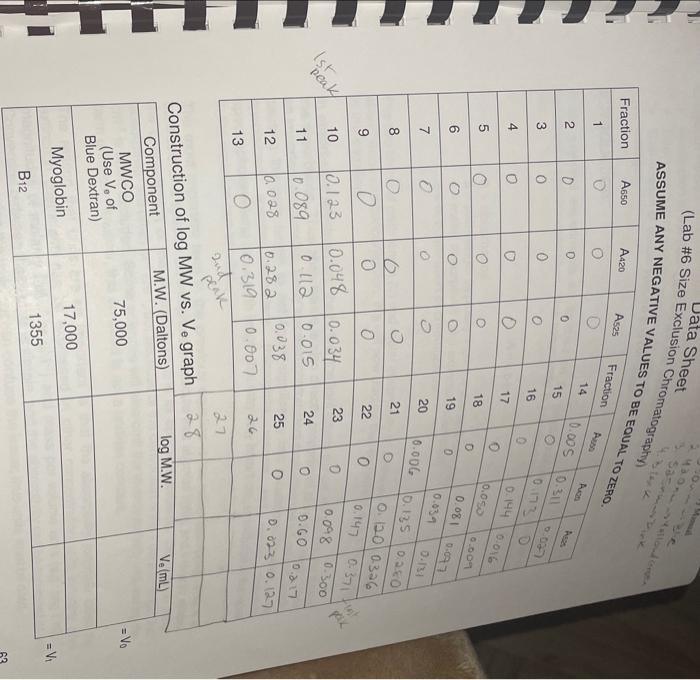 Data Sheet
(Lab #6 Size Exclusion Chromatography)
ASSUME ANY NEGATIVE VALUES TO BE EQUAL TO ZERO.
Fraction A650 A420 A525 Fraction A650 A420 A525
1 0 0 0 14 0.005 0.311 0.027
2 0 0 0 15 0 0.173 0
3 0 0 0 16 0 0.144 0.016
4 0 0 0 17 0 0.050 0.009
5 0 0 0 18 0 0.081
6 0 0 0 19 0 0.039 0.131
7 0 0 0 20 0.006 0.135 0.250
8 0 0 0 21 0 0.120 0.326
9 0 0 0 22 0 0.147 0.371 peak
1st peak 10 0.123 0.048 0.034 23 0 0.098 0.300
11 0.089 0.112 0.015 24 0 0.60 0.217
12 0.028 0.282 0.038 25 0 0.023 0.127
13 0 0.319 0.007 26
2nd peak 27
28
Construction of log MW vs. Ve graph
Component M.W. (Daltons) log M.W. Ve (mL)
MWCO
(Use Ve of
Blue Dextran) 75,000 = V0
Myoglobin 17,000
B12 1355 = Vi
63